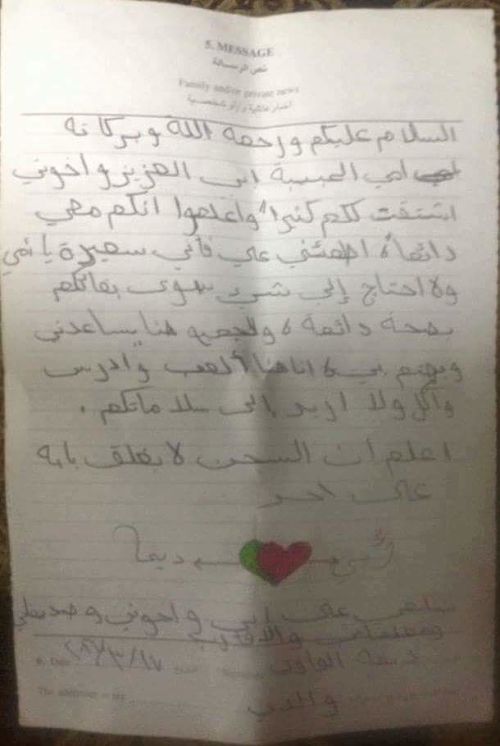 5. MESSAGE
نص الرسالة
Family and/or private news
أخبار عائلية و/أو شخصية
السلام عليكم ورحمة الله وبركاته
امي الحبيبة ابي العزيز واخوتي
اشتقت لكم كثيرا واعلموا انكم معي
دائماً اطمئني علي فأني سعيدة يا أمي
ولا احتاج إلى شيء سوى بقائكم
بصحة دائمة والجميع هنا يساعدني
ويهتم بي انا هنا ألعب وادرس
وآكل ولا اريد إلى سلامتكم .
اعلم أن السجن لا يغلق بابه
على احد
أمي ديما
سلامي على ابي واخوتي وصديقاتي
ومعلماتي والأقارب
ديمة الواوي
6. Date